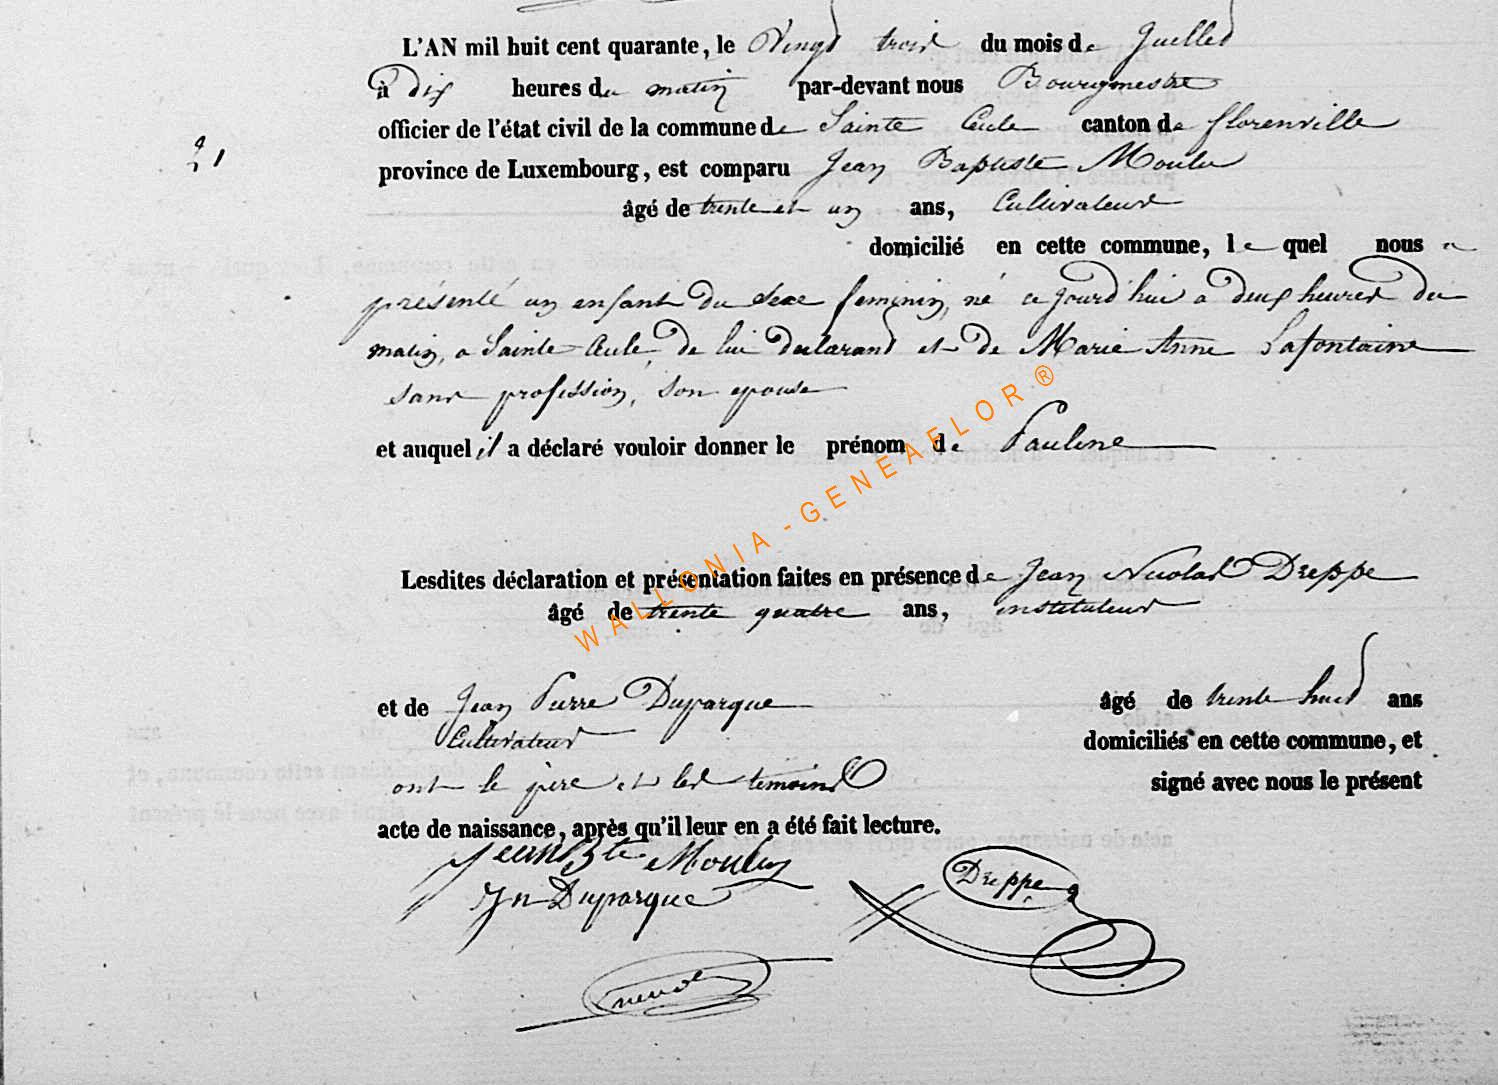 L'AN mil huit cent quarante, le Vingt trois du mois de Juillet
à dix heures du matin par-devant nous Bourgmestre
officier de l'état civil de la commune de Sainte Cecile canton de florenville
21
province de Luxembourg, est comparu Jean Baptiste Moulu
âgé de trente et un ans, Cultivateur
domicilié en cette commune, le quel nous a
présenté un enfant du sexe feminin, né ce jourd'hui a deux heures du
matin, a Sainte Cecile, de lui declarant et de Marie Anne Lafontaine
sans profession, son epouse
et auquel il a déclaré vouloir donner le prénom de Pauline
WALLONIA-GENEAFLOR®
Lesdites déclaration et présentation faites en présence de Jean Nicolas Dreppe
âgé de trente quatre ans, instituteur
et de Jean Pierre Duparque âgé de trente huit ans
Cultivateur domiciliés en cette commune, et
ont le père et les temoins signé avec nous le présent
acte de naissance, après qu'il leur en a été fait lecture.
Jean Bte Moulu
Dreppe
Jn Duparque